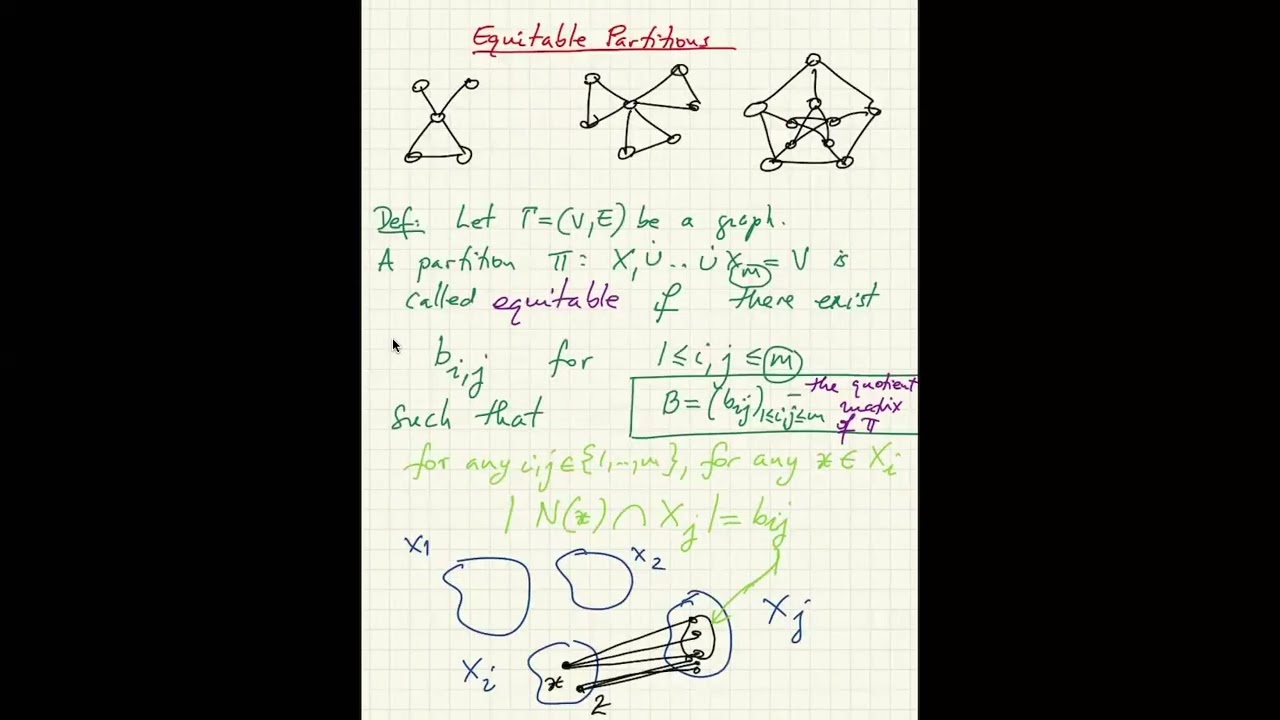 Equitable Partitions
Def: Let Γ=(V,E) be a graph.
A partition Π: X₁ ⊍ .. ⊍ Xₘ = V is
called equitable if there exist
b_{i,j} for 1 ≤ i,j ≤ m
such that
B = (b_{ij})_{1≤i,j≤m} - the quotient
matrix
of Π
for any i,j ∈ {1,..,m}, for any x ∈ X_i
| N(x) ∩ X_j | = b_{ij}
X1
X2
X_j
X_i
x
2